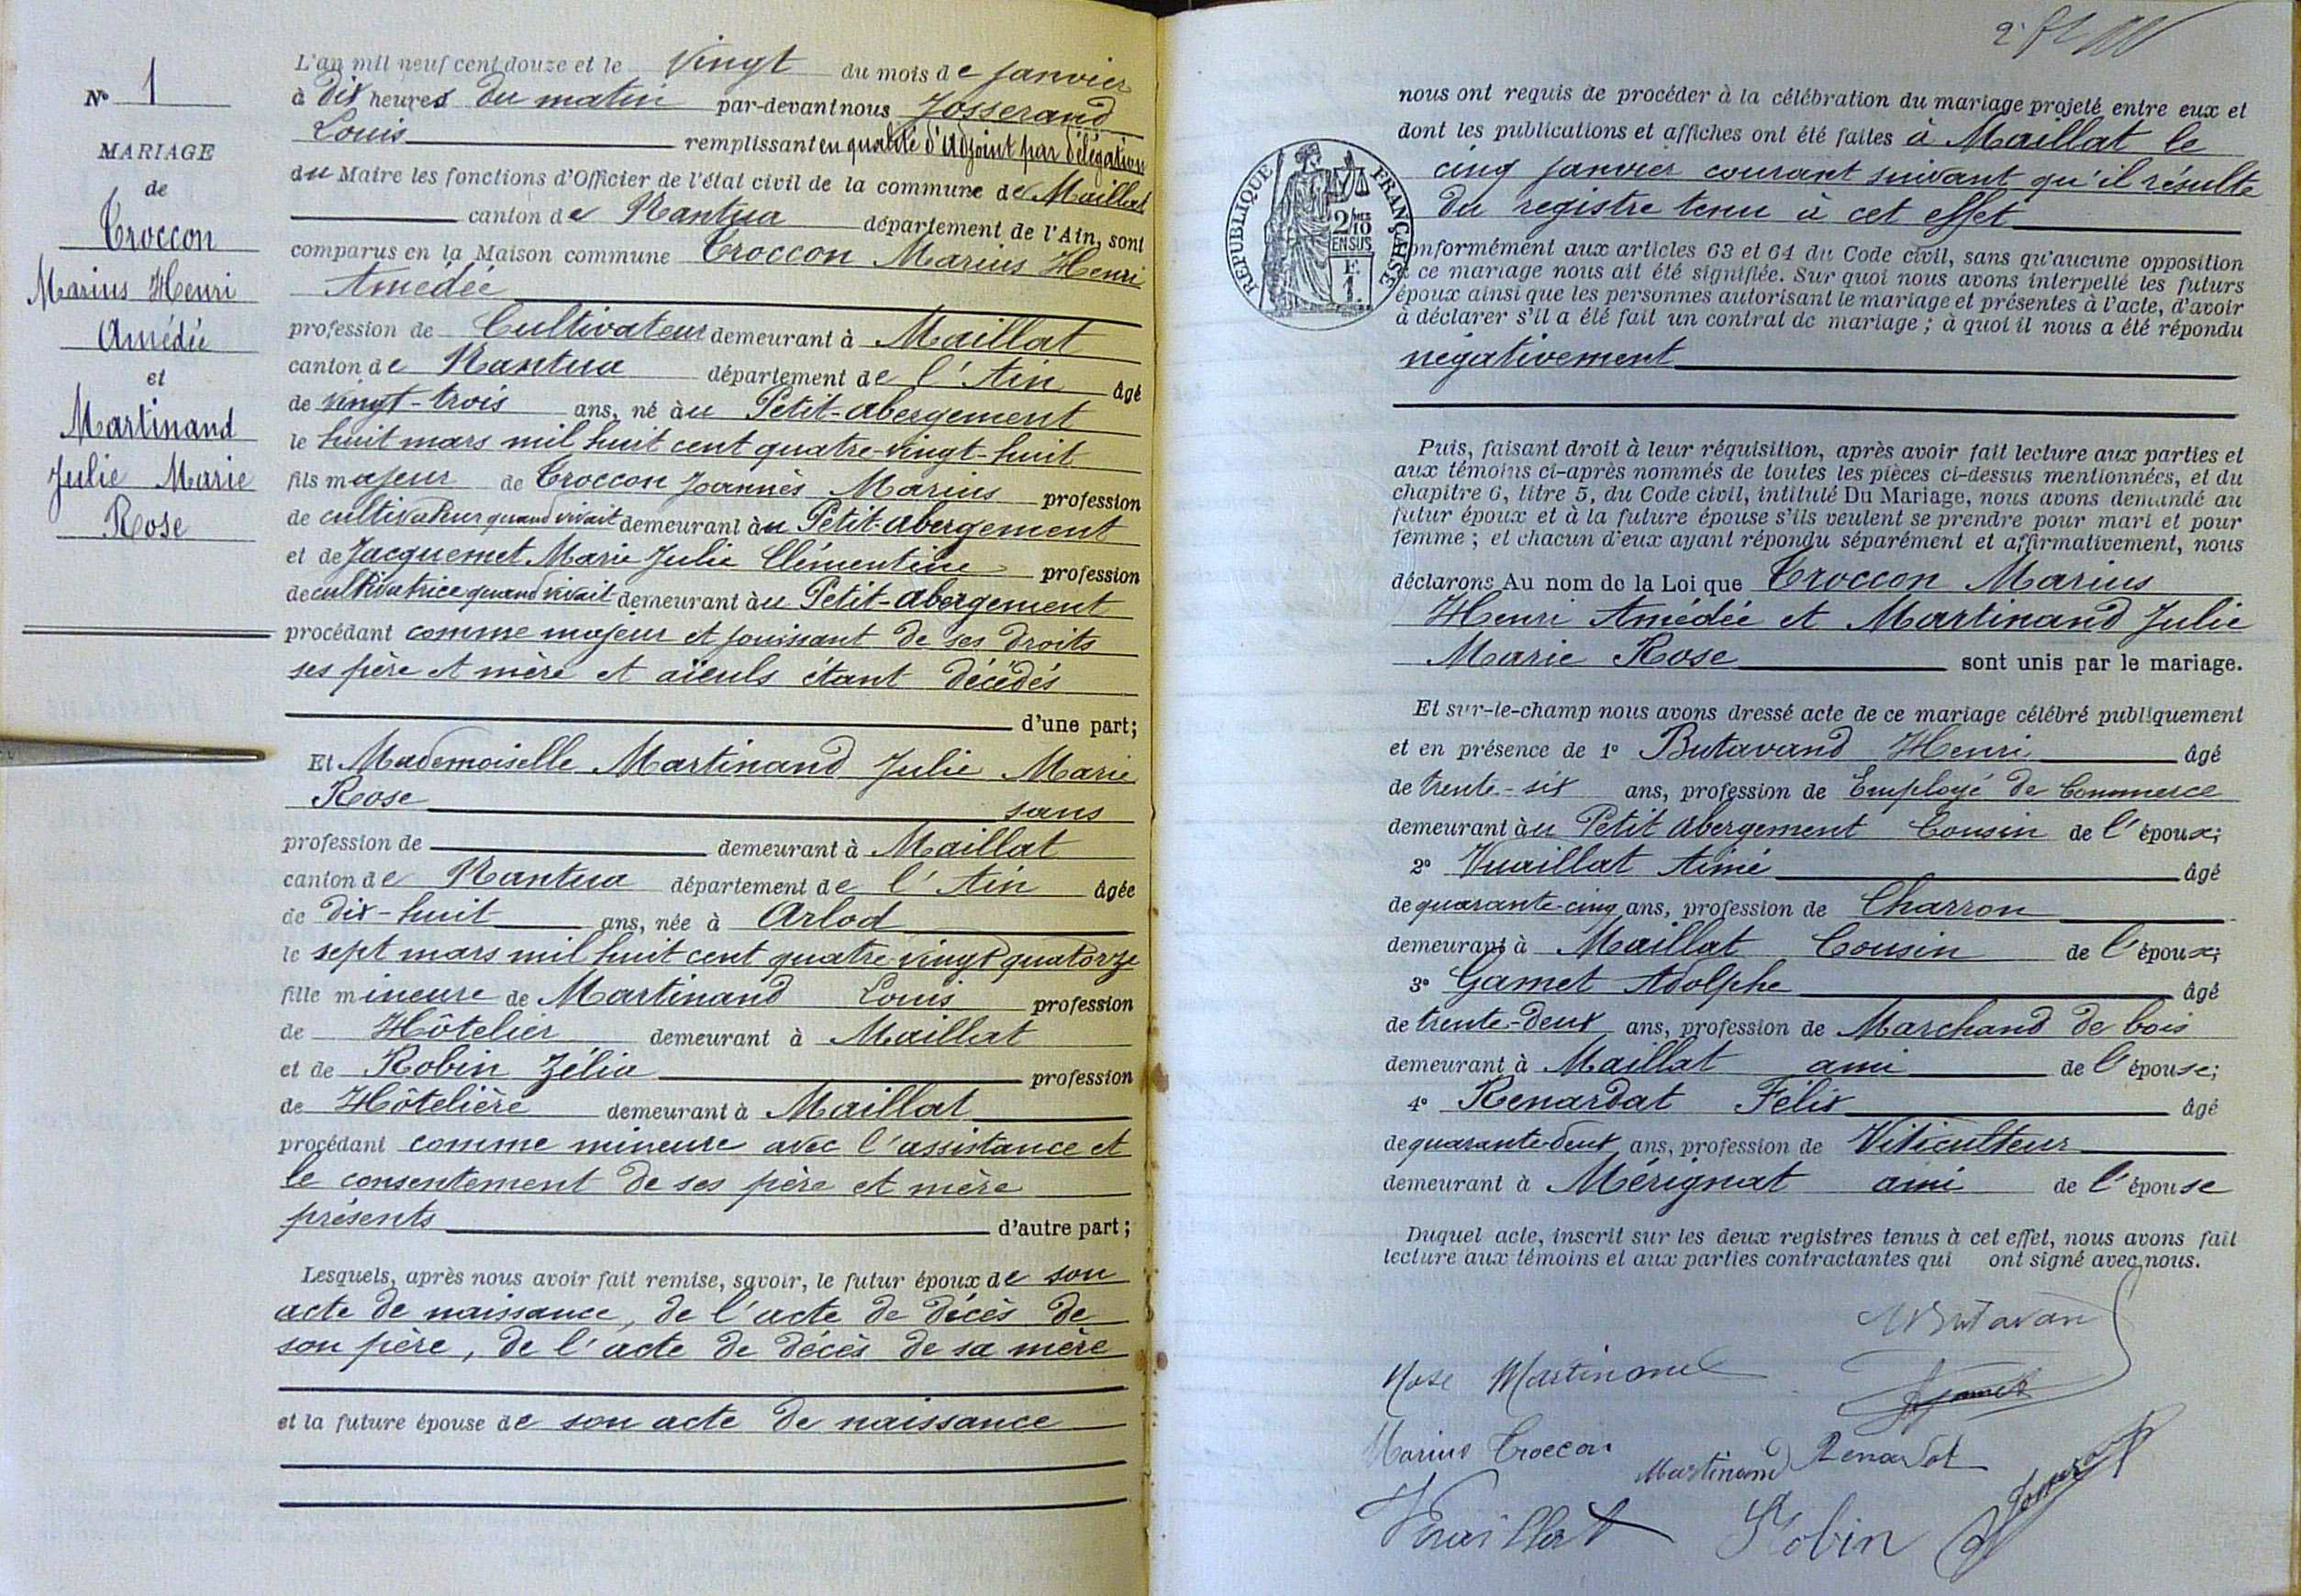 N° 1
MARIAGE
de
Troccon
Marius Henri
Amédée
et
Martinand
Julie Marie
Rose
L'an mil neuf cent douze et le vingt du mois de janvier
à dix heures du matin par-devant nous Josserand
Louis remplissant en qualité d'adjoint par délégation
du Maire les fonctions d'Officier de l'état civil de la commune de Maillat
canton de Nantua département de l'Ain, sont
comparus en la Maison commune Troccon Marius Henri
Amédée
profession de Cultivateur demeurant à Maillat
canton de Nantua département de l'Ain âgé
de vingt-trois ans, né au Petit-Abergement
le huit mars mil huit cent quatre-vingt-huit
fils majeur de Troccon Joannès Marius profession
de cultivateur quand vivait demeurant au Petit-Abergement
et de Jacquemet Marie Julie Clémentine profession
de cultivatrice quand vivait demeurant au Petit-Abergement
procédant comme majeur et jouissant de ses droits
ses père et mère et aïeuls étant décédés
d'une part;
Et Mademoiselle Martinand Julie Marie
Rose sans
profession de demeurant à Maillat
canton de Nantua département de l'Ain âgée
de dix-huit ans, née à Arlod
le sept mars mil huit cent quatre-vingt quatorze
fille mineure de Martinand Louis profession
de Hôtelier demeurant à Maillat
et de Robin Zélia profession
de Hôtelière demeurant à Maillat
procédant comme mineure avec l'assistance et
le consentement de ses père et mère
présents d'autre part;
Lesquels, après nous avoir fait remise, savoir, le futur époux de son
acte de naissance, de l'acte de décès de
son père, de l'acte de décès de sa mère
et la future épouse de son acte de naissance
nous ont requis de procéder à la célébration du mariage projeté entre eux et
dont les publications et affiches ont été faites à Maillat le
cinq janvier courant suivant qu'il résulte
du registre tenu à cet effet
RÉPUBLIQUE FRANÇAISE
2/10
EN SUS
F.
1.
conformément aux articles 63 et 64 du Code civil, sans qu'aucune opposition
à ce mariage nous ait été signifiée. Sur quoi nous avons interpellé les futurs
époux ainsi que les personnes autorisant le mariage et présentes à l'acte, d'avoir
à déclarer s'il a été fait un contrat de mariage; à quoi il nous a été répondu
négativement
Puis, faisant droit à leur réquisition, après avoir fait lecture aux parties et
aux témoins ci-après nommés de toutes les pièces ci-dessus mentionnées, et du
chapitre 6, titre 5, du Code civil, intitulé Du Mariage, nous avons demandé au
futur époux et à la future épouse s'ils veulent se prendre pour mari et pour
femme; et chacun d'eux ayant répondu séparément et affirmativement, nous
déclarons Au nom de la Loi que Troccon Marius
Henri Amédée et Martinand Julie
Marie Rose sont unis par le mariage.
Et sur-le-champ nous avons dressé acte de ce mariage célébré publiquement
et en présence de 1° Butavand Henri âgé
de trente-six ans, profession de Employé de Commerce
demeurant au Petit Abergement Cousin de l'époux;
2° Vuaillat Aimé âgé
de quarante-cinq ans, profession de Charron
demeurant à Maillat Cousin de l'époux;
3° Gamet Adolphe âgé
de trente-deux ans, profession de Marchand de bois
demeurant à Maillat ami de l'épouse;
4° Renardat Félix âgé
de quarante-deux ans, profession de Viticulteur
demeurant à Mérignat ami de l'épouse
Duquel acte, inscrit sur les deux registres tenus à cet effet, nous avons fait
lecture aux témoins et aux parties contractantes qui ont signé avec nous.
Butavan
Rose Martinand
Gamet
Marius Troccon
Martinand Renardat
Josserand
Vuaillat Robin